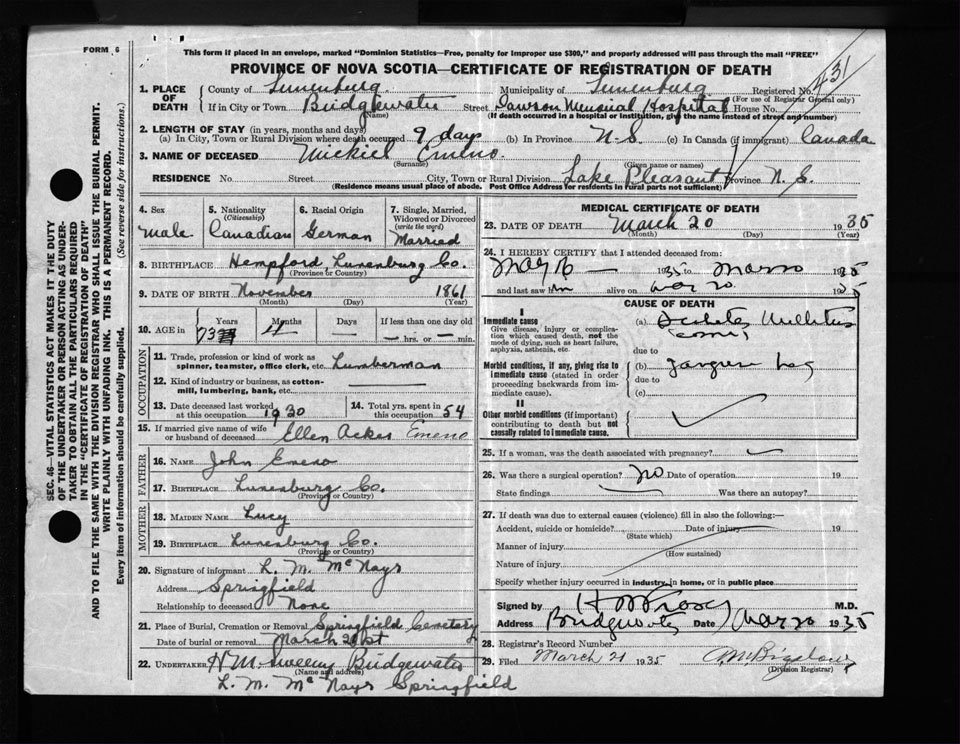 FORM 6
This form if placed in an envelope, marked "Dominion Statistics—Free, penalty for improper use $300," and properly addressed will pass through the mail "FREE"
PROVINCE OF NOVA SCOTIA—CERTIFICATE OF REGISTRATION OF DEATH
1. PLACE OF DEATH
County of Lunenburg Municipality of Lunenburg Registered No. 431
(For use of Registrar General only)
If in City or Town Bridgewater Street Dawson Memorial Hospital House No.
(Name) (If death occurred in a hospital or institution, give the name instead of street and number)
2. LENGTH OF STAY (in years, months and days)
(a) In City, Town or Rural Division where death occurred 9 days (b) In Province N.S. (c) In Canada (if immigrant) Canada
3. NAME OF DECEASED Emeno
(Surname) (Given name or names)
RESIDENCE No. Street City, Town or Rural Division Lake Pleasant Province N.S.
(Residence means usual place of abode. Post Office Address for residents in rural parts not sufficient)
4. Sex Male
5. Nationality (Citizenship) Canadian
6. Racial Origin German
7. Single, Married, Widowed or Divorced (write the word) Married
8. BIRTHPLACE Hempford, Lunenburg Co.
(Province or Country)
9. DATE OF BIRTH November 1861
(Month) (Day) (Year)
10. AGE in Years 73 Months 4 Days — If less than one day old — hrs. or — min.
OCCUPATION
11. Trade, profession or kind of work as spinner, teamster, office clerk, etc. Lumberman
12. Kind of industry or business, as cotton-mill, lumbering, bank, etc.
13. Date deceased last worked at this occupation 1930
14. Total yrs. spent in this occupation 54
15. If married give name of wife or husband of deceased Ellen Acker Emeno
FATHER
16. NAME John Emeno
17. BIRTHPLACE Lunenburg Co.
(Province or Country)
MOTHER
18. MAIDEN NAME Lucy
19. BIRTHPLACE Lunenburg Co.
(Province or Country)
20. Signature of informant L. M. McNayr
Address Springfield
Relationship to deceased None
21. Place of Burial, Cremation or Removal Springfield Cemetery
Date of burial or removal March 21st
22. UNDERTAKER H M Sweeny Bridgewater
(Name and address)
L. M. McNayr Springfield
MEDICAL CERTIFICATE OF DEATH
23. DATE OF DEATH March 20 1935
(Month) (Day) (Year)
24. I HEREBY CERTIFY that I attended deceased from:
1935 to 1935
and last saw him alive on Mar 20 1935
CAUSE OF DEATH
I
Immediate cause
Give disease, injury or complication which caused death, not the mode of dying, such as heart failure, asphyxia, asthenia, etc.
(a) Diabetes Mellitus
(coma)
due to
Morbid conditions, if any, giving rise to immediate cause (stated in order proceeding backwards from immediate cause).
(b)
due to
(c)
II
Other morbid conditions (if important) contributing to death but not causally related to immediate cause.
25. If a woman, was the death associated with pregnancy?
26. Was there a surgical operation? no Date of operation 19
State findings Was there an autopsy?
27. If death was due to external causes (violence) fill in also the following:—
Accident, suicide or homicide? Date of injury 19
(State which)
Manner of injury
(How sustained)
Nature of injury
Specify whether injury occurred in industry, in home, or in public place
Signed by M.D.
Address Bridgewater Date Mar 20 1935
28. Registrar's Record Number
29. Filed March 21 1935
(Division Registrar)
SEC. 46—VITAL STATISTICS ACT MAKES IT THE DUTY OF THE UNDERTAKER OR PERSON ACTING AS UNDERTAKER TO OBTAIN ALL THE PARTICULARS REQUIRED IN THE "CERTIFICATE OF REGISTRATION OF DEATH" AND TO FILE THE SAME WITH THE DIVISION REGISTRAR WHO SHALL ISSUE THE BURIAL PERMIT.
WRITE PLAINLY WITH UNFADING INK. THIS IS A PERMANENT RECORD.
Every item of information should be carefully supplied. (See reverse side for instructions.)